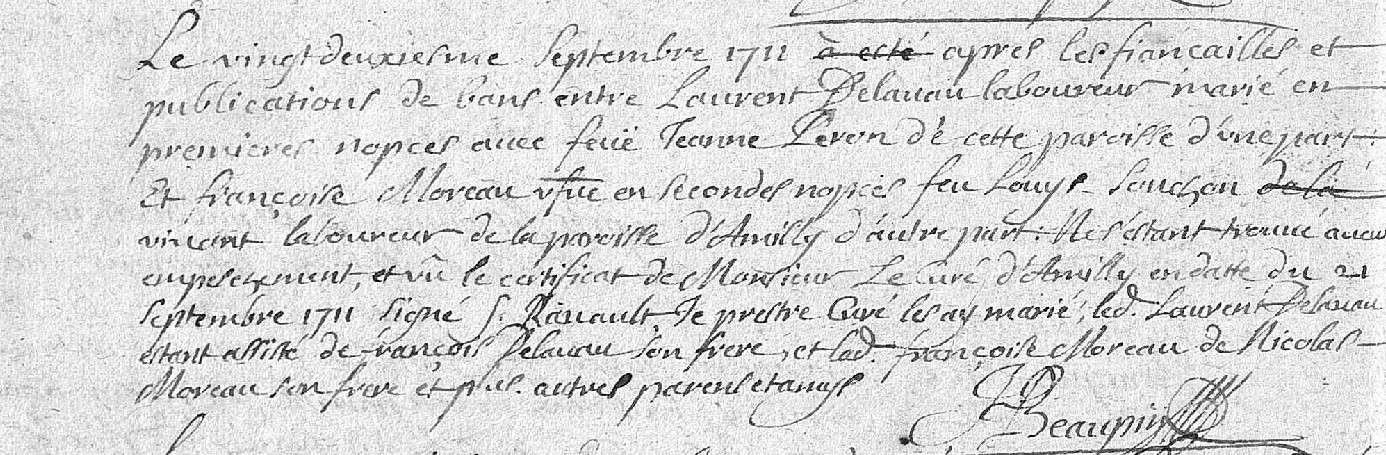 Le vingt deuxiesme Septembre 1711 a esté apres les fiançailles et
publications de bans entre Laurent Delauau laboureur marié en
premieres nopces auec feüe Jeanne Peron de cette paroisse d'une part
Et françoise Moreau vfue en secondes nopces feu Louys Souchon de la
viuant laboureur de la paroisse d'Amilly d'autre part. Ne s'estant trouué aucun
empeschement, et vû le certificat de Monsieur Le Curé d'Amilly en datte du 21
Septembre 1711 signé S. Rauault Je prestre Curé les ay marié, led. Laurent Delauau
estant assisté de françois Delauau son frere, et lad. françoise Moreau de Nicolas
Moreau son frere et plus. autres parens et amys
Beaupin